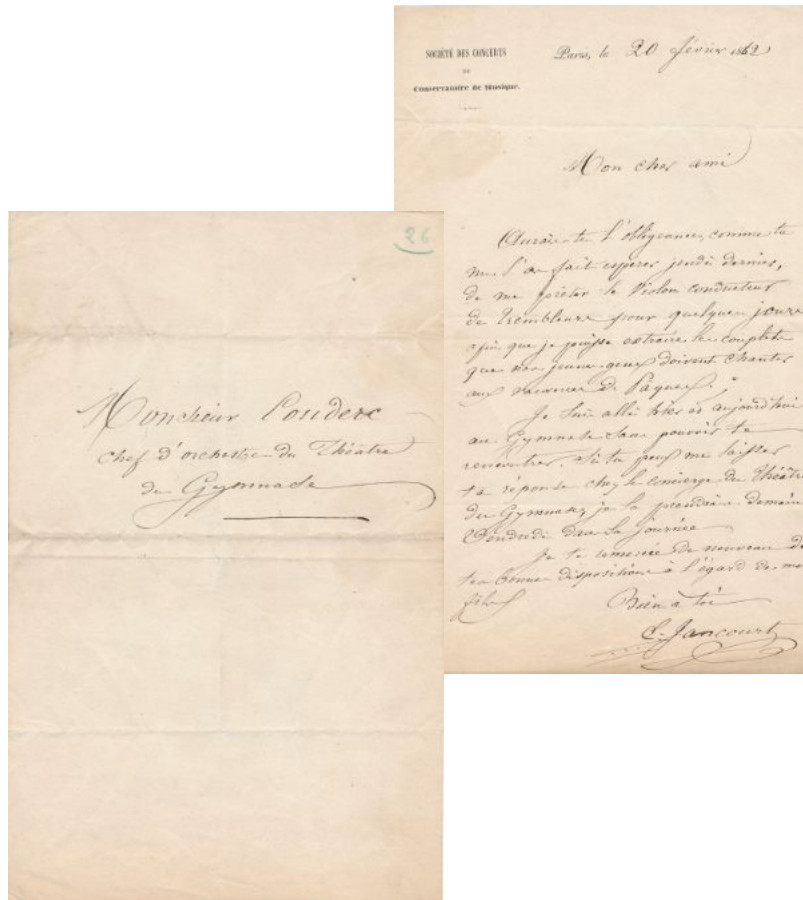 26
Monsieur Couderc
chef d'orchestre du Théâtre
du Gymnase
SOCIÉTÉ DES CONCERTS
DU
Conservatoire de Musique.
Paris, le 20 février 1862
Mon cher ami
Aurais-tu l'obligeance, comme tu
me l'as fait espérer jeudi dernier,
de me prêter le Violon conducteur
de trembleurs pour quelques jours
afin que je puisse extraire les couplets
que nos jeunes gens doivent chanter
aux vacances de Pâques.
Je suis allé hier et aujourd'hui
au Gymnase sans pouvoir te
rencontrer. Si tu peux me laisser
ta réponse chez le concierge du Théâtre
du Gymnase, je la prendrai demain
Vendredi dans la journée
Je te remercie de nouveau de
tes bonnes dispositions à l'égard de mon
fils
Bien à toi
E. Jancourt